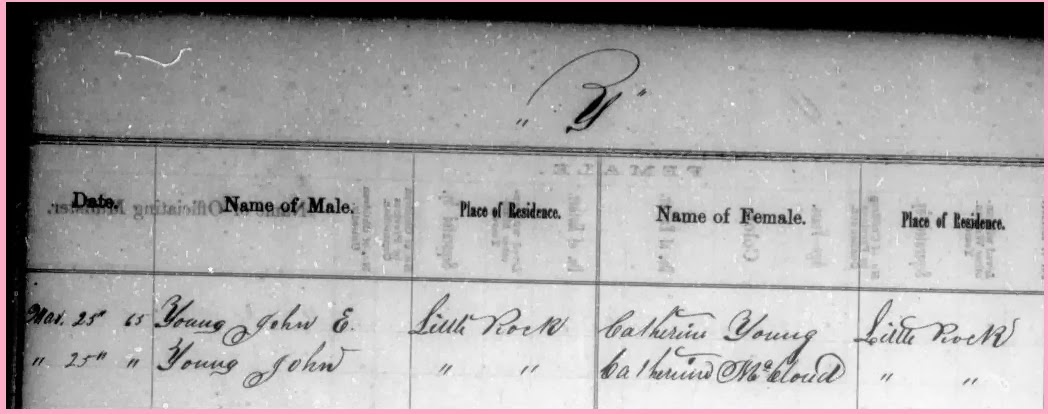 " Y "
Date. Name of Male. Place of Residence. Name of Female. Place of Residence.
Mar. 25" 65 Young John E. Little Rock Catherine Young Little Rock
" 25" " Young John " " Catherine McCloud " "